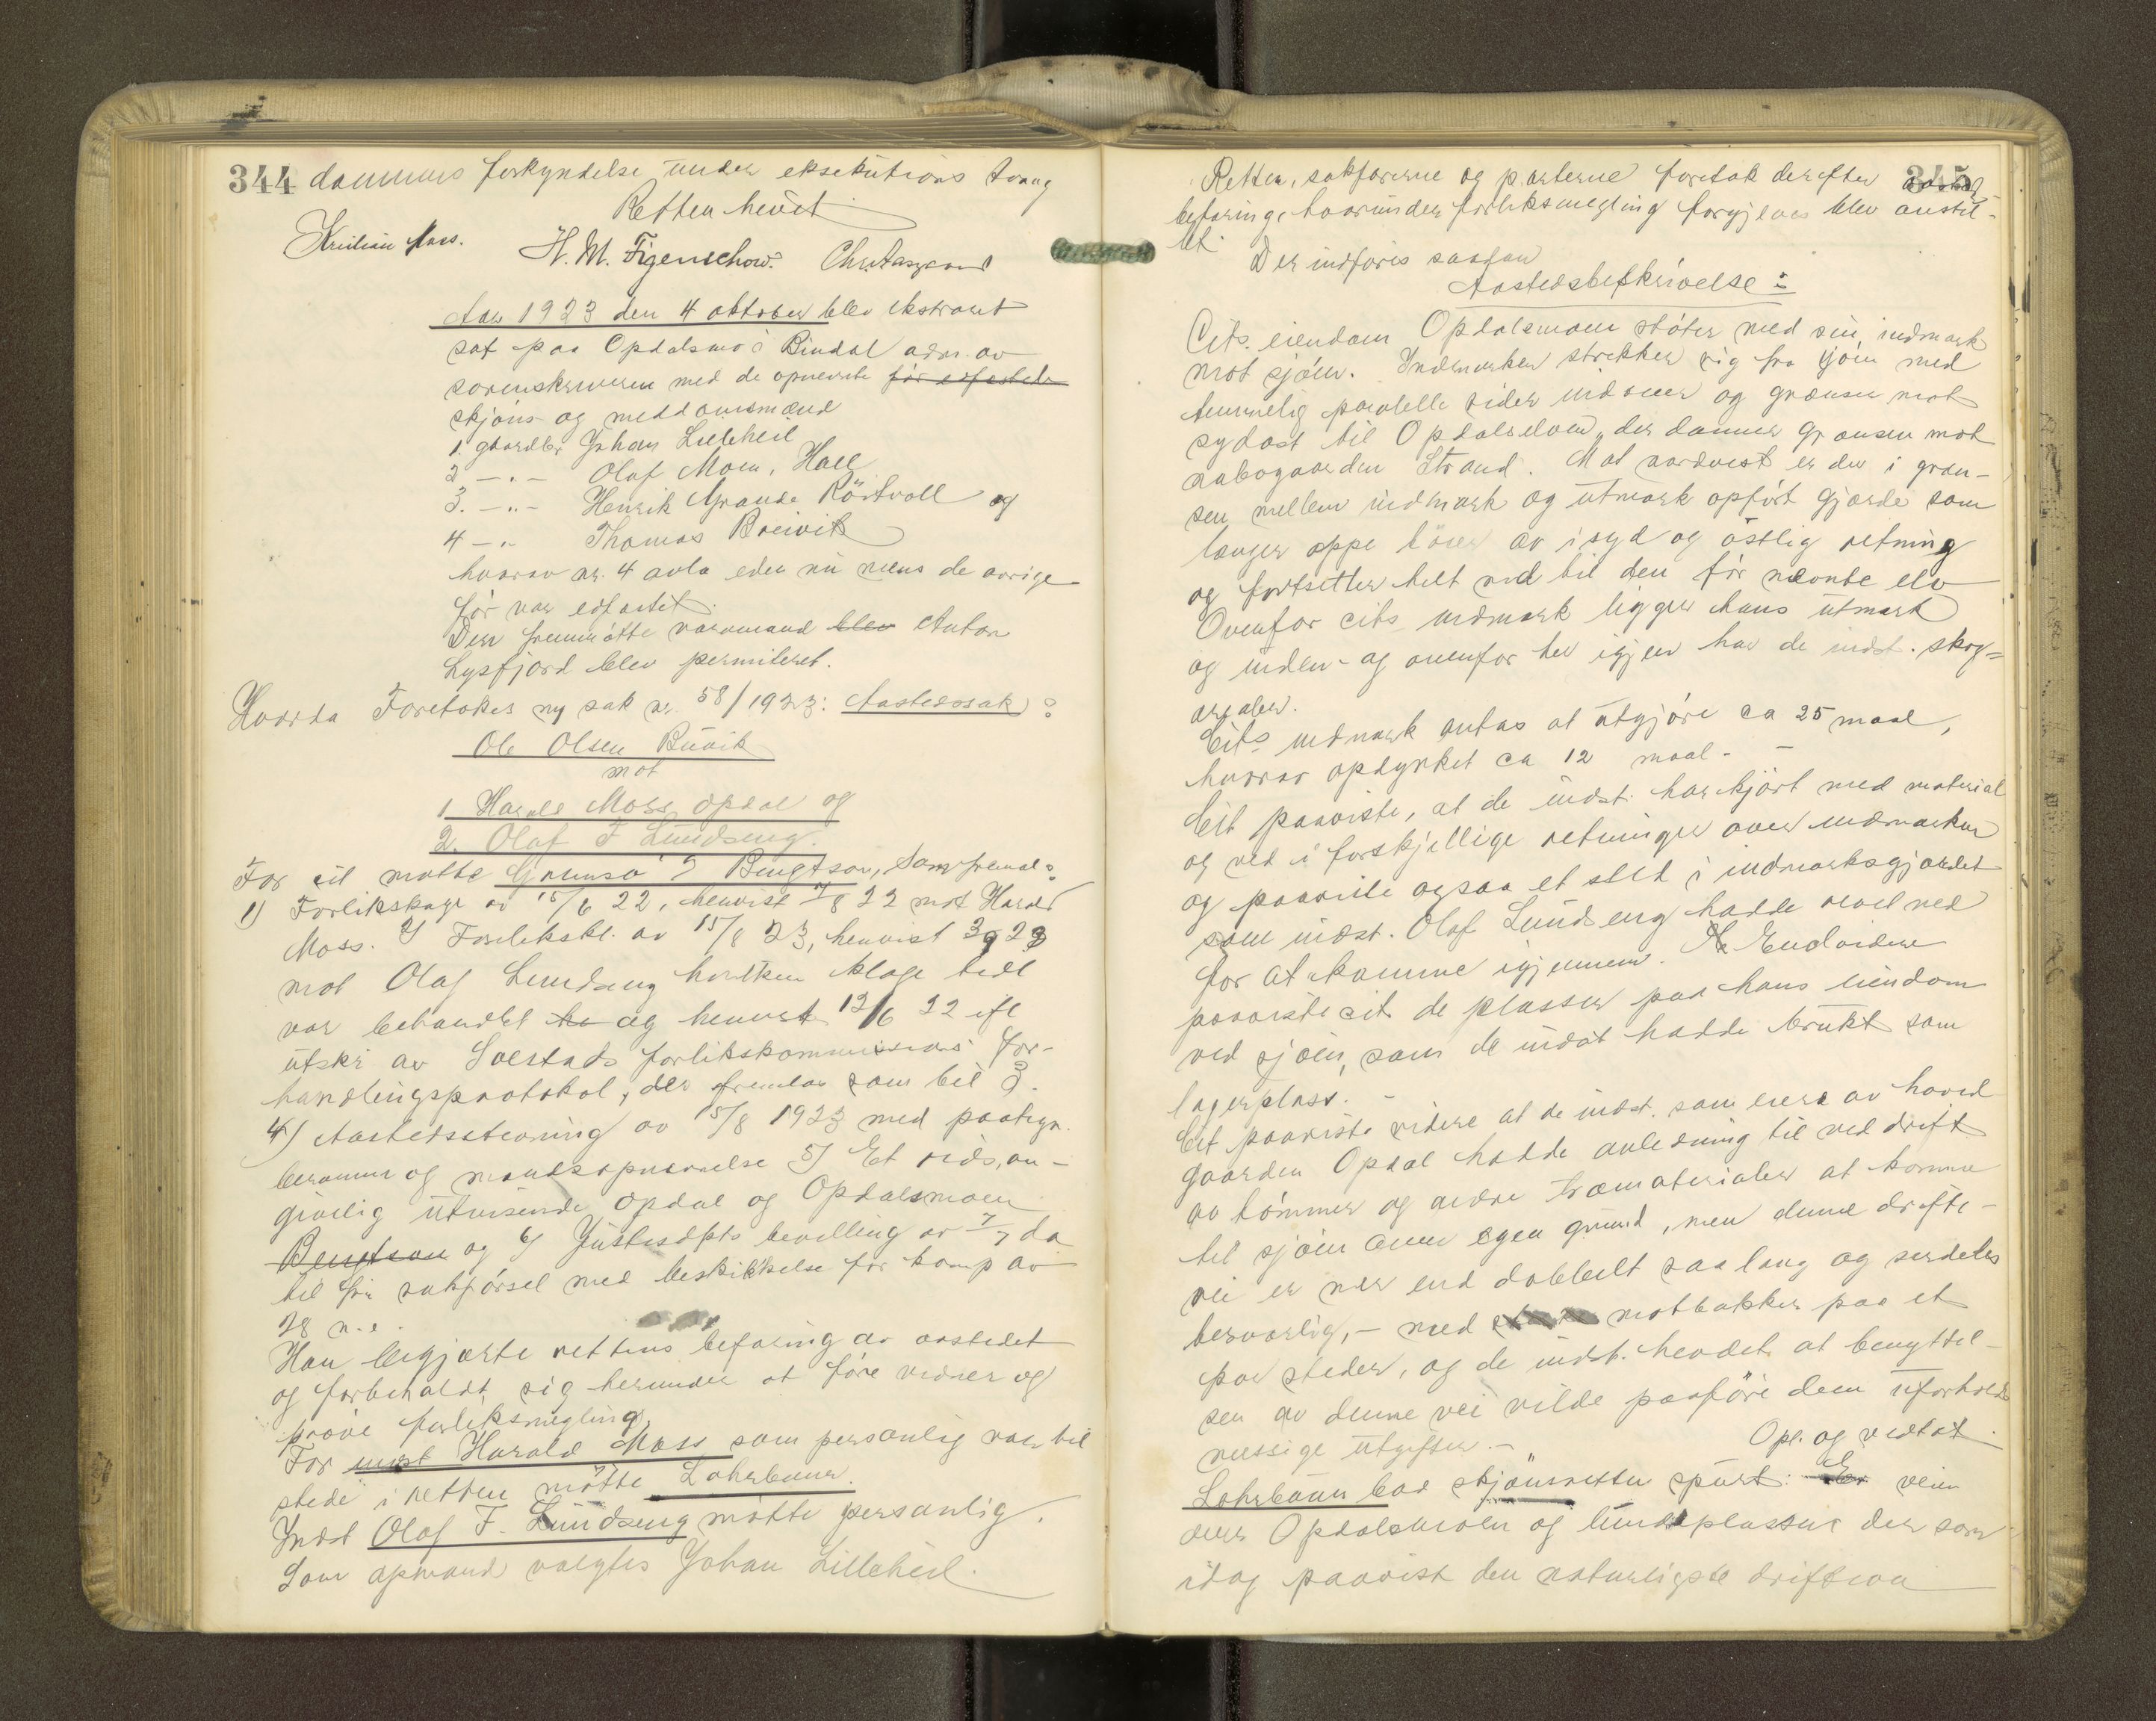 344 dommens forkyndelse under eksekutions tvang
Retten hevet
Kristian Moss. H. M. Figenschow. Chr. Aasgaard
Aar 1923 den 4 oktober blev ekstraret
sat paa Opdalsmo i Bindal adm. av
sorenskriveren med de opnevnte før edfæstede
skjøns- og meddomsmænd
1. gaardbr Johan Lilleheil
2 -"- Olaf Moen, Hall
3. -"- Henrik Grande Röstvoll og
4 -"- Thomas Breivik
hvorav nr. 4 avla eden nu mens de øvrige
før var edfæstet.
Den fremmøtte varamand blev Anton
Lysfjord blev permiteret.
Hvorda Foretokes ny sak nr. 58/1923: Aastedssak:
Ole Olsen Buvik
mot
1 Harald Moss Opdal og
2. Olaf F Lundseng.
For cit møtte Bengtson, som freml:
1) Forliksklage av 15/6 22, henvist 7/8 22 mot Harald
Moss. 2) Forlikskl. av 15/8 23, henvist 3/9 23
mot Olaf Lundseng hvilken klage
var behandlet ha og henvist 12/6 22 ifl
utskr av Solstads forlikskommissions for-
handlingsprotokol, der fremlas som bil 3.
4) Aastedsstevning av 15/8 1923 med paategn.
beramm og mandsopnævnelse 5) Et rids, an-
givelig utvisende Opdal og Opdalsmoen
Bengtson og 6) Justisdpts bevilling av 7/7 da
til fri sakførsel med beskikkelse for komp av
28 n.e.
Han begjærte rettens befaring av aastedet
og forbeholdt sig herunder at føre vidner og
prøve forliksmegling.
For inst Harald Moss som personlig var til
stede i retten møtte Lohrbauer.
Indst Olaf F. Lundseng møtte personlig.
Som opmand valgtes Johan Lilleheil.
345
Retten, sakførerne og parterne foretok derefter aasteds
befaring, hvorunder forliksmegling forgjæves blev anstil-
let.
Der indføres saadan
Aastedsbeskrivelse:
Cits. eiendom Opdalsmoen støter med sin indmark
mot sjøen. Indmarken strekker sig fra sjøen med
temmelig paralelle sider indover og grænser mot
sydost til Opdalselven, der danner grænsen mot
nabogaarden Strand. Mot nordvest er der i græn-
sen mellem indmark og utmark opført gjærde som
længer oppe bøier av i syd og østlig retning
og fortsetter helt ned til den før nævnte elv
Ovenfor cits indmark ligger hans utmark
og inden- og ovenfor her igjen har de indst. skog-
arealer.
Cits indmark antas at utgjøre ca 25 maal,
hvorav opdyrket ca 12 maal. -
Cit paaviste, at de indst. har kjørt med material
og ved i forskjellige retninger over indmarken
og paaviste ogsaa et sted i indmarksgjærdet
som indst. Olaf Lundseng hadde revet ned
for at komme igjennem. Endvidere
paaviste cit de plasser paa hans eiendom
ved sjøen, som de indst hadde brukt som
lagerplass. -
Cit paaviste videre at de indst. som eiere av hoved
gaarden Opdal hadde anledning til ved drift
av tømmer og andre træmaterialer at komme
til sjøen over egen grund, men denne drifts-
vei er mer end dobbelt saa lang og serdeles
besværlig, - med motbakker paa et
par steder, og de indst. hevdet at benyttel-
sen av denne vei vilde paaføre dem uforholds
mæssige utgifter. - Opl. og vedtat.
Lohrbauer bad skjønsretten spurt: Er veien
over Opdalsmoen og lundsplassene der som
idag paavist den naturligste driftsvei